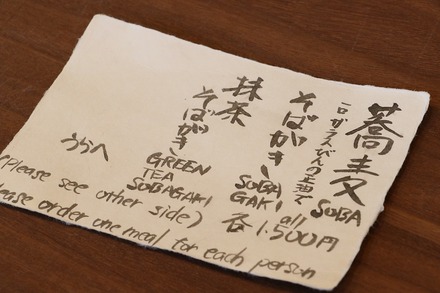 蕎麦
SOBA
そばがき
SOBA
GAKI
抹茶
そばがき
GREEN
TEA
SOBAGAKI
all
各1.500円
うらへ
(Please see other side)
ease order one meal for each person